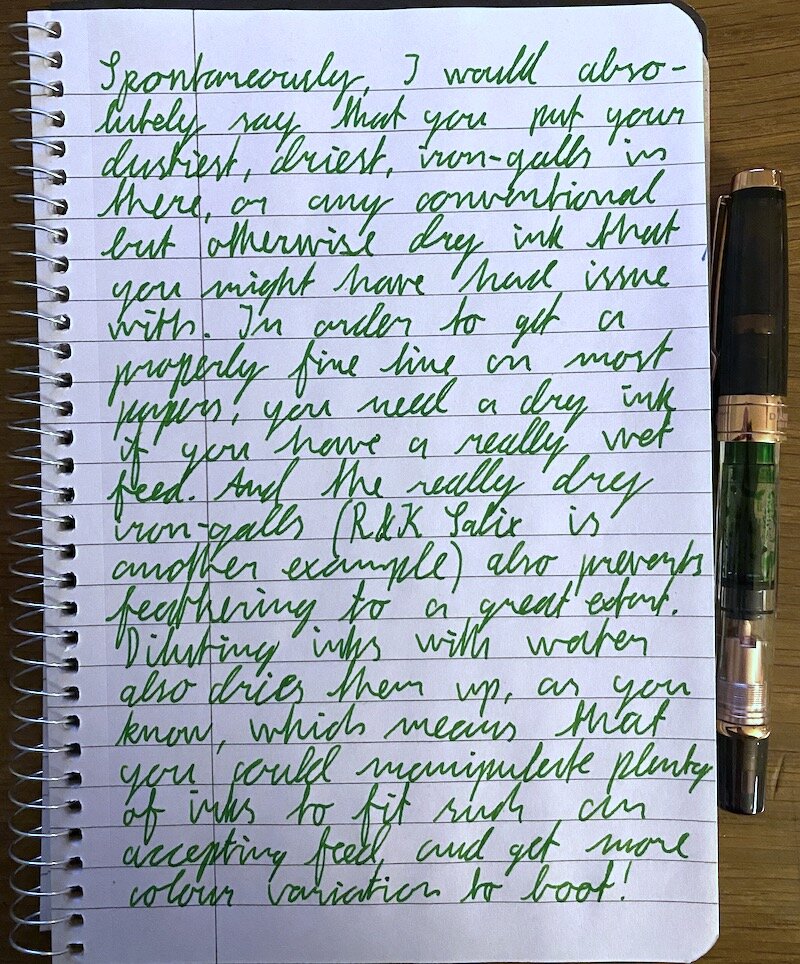 Spontaneously, I would abso-
lutely say that you put your
dustiest, driest, iron-galls in
there, or any conventional
but otherwise dry ink that
you might have had issue
with. In order to get a
properly fine line on most
papers, you need a dry ink
if you have a really wet
feed. And the really dry
iron-galls (R&K Salix is
another example) also prevents
feathering to a great extent.
Diluting inks with water
also dries them up, as you
know, which means that
you could manipulate plenty
of inks to fit such an
accepting feed, and get more
colour variation to boot!